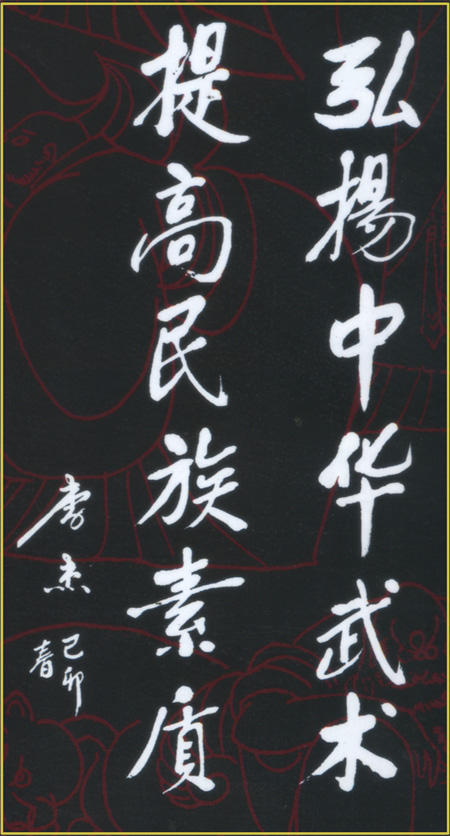 弘揚中华武术
提高民族素质
李杰
己卯
春